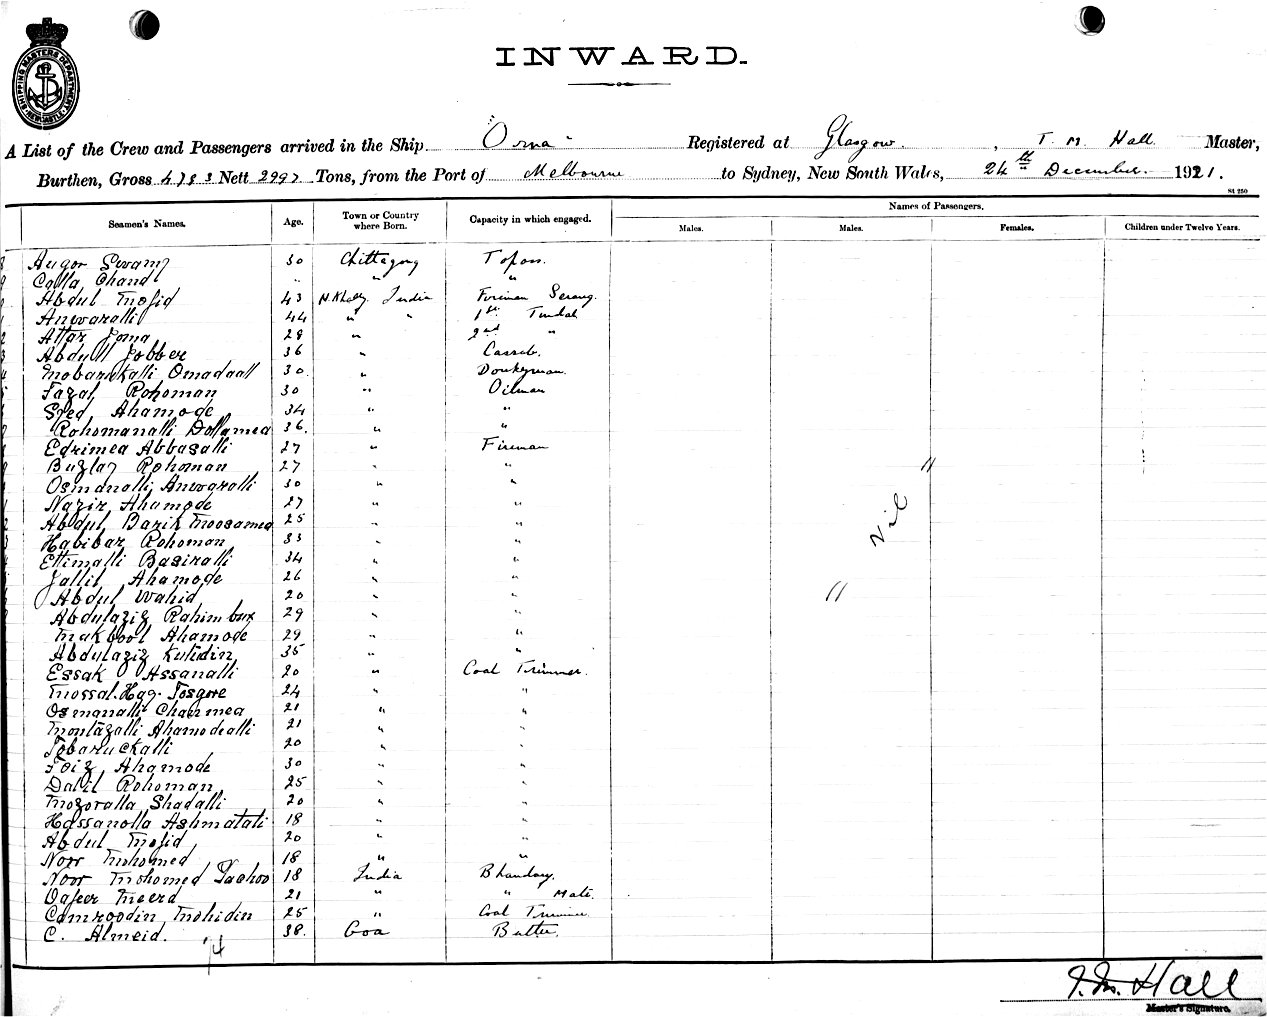 SHIPPING MASTERS DEPARTMENT NEWCASTLE
INWARD.
A List of the Crew and Passengers arrived in the Ship "Orna" Registered at Glasgow, T. M. Hall Master,
Burthen, Gross 4783 Nett 2997 Tons, from the Port of Melbourne to Sydney, New South Wales, 24th December. 1921.
St 250
Seamen's Names. Age. Town or Country where Born. Capacity in which engaged. Names of Passengers.
Males. Males. Females. Children under Twelve Years.
Augor Swamy 30 Chittagong Topass.
Calla Chand " " "
Abdul Mojid 43 N. Khally India Fireman Serang.
Anwaralli 44 " " 1st Tindal
Attar Joma 28 " 2nd "
Abdull Jobber 36 " Cassab.
Mobarackalli Omadaall 30. " Donkeyman.
Fazal Rohoman 30 " Oilman
Syed Ahamode 34 " "
Rohomanalli Dollamea 36. " "
Edrimea Abbasalli 27 " Fireman
Buzlay Rohoman 27 " "
Osmanalli Anwaralli 30 " "
Nazir Ahamode 27 " "
Abdul Barik Moosamea 25 " "
Habibar Rohoman 33 " "
Ettimalli Basiralli 34 " "
Jallil Ahamode 26 " "
Abdul Wahid 20 " "
Abdulaziz Rahimbux 29 " "
Makbool Ahamode 29 " "
Abdulaziz Kutidin 35 " "
Essak Assanalli 20 " Coal Trimmer.
Mossal. Haq. Josgore 24 " "
Osmanalli Chanmea 21 " "
Montazalli Ahamodealli 21 " "
Tobaruckalli 20 " "
Foiz Ahamode 30 " "
Dalil Rohoman 25 " "
Mozoralla Shadalli 20 " "
Hassanolla Ashmatali 18 " "
Abdul Mojid 20 " "
Norr Mohomed 18 " "
Noor Mohomed 18 India Bhandary.
Meera 21 " " Mate.
Camroodin Mohidin 25 " Coal Trimmer
C. Almeid. 38. Goa Butler.
Nil
74
T. M. Hall
Master's Signature.